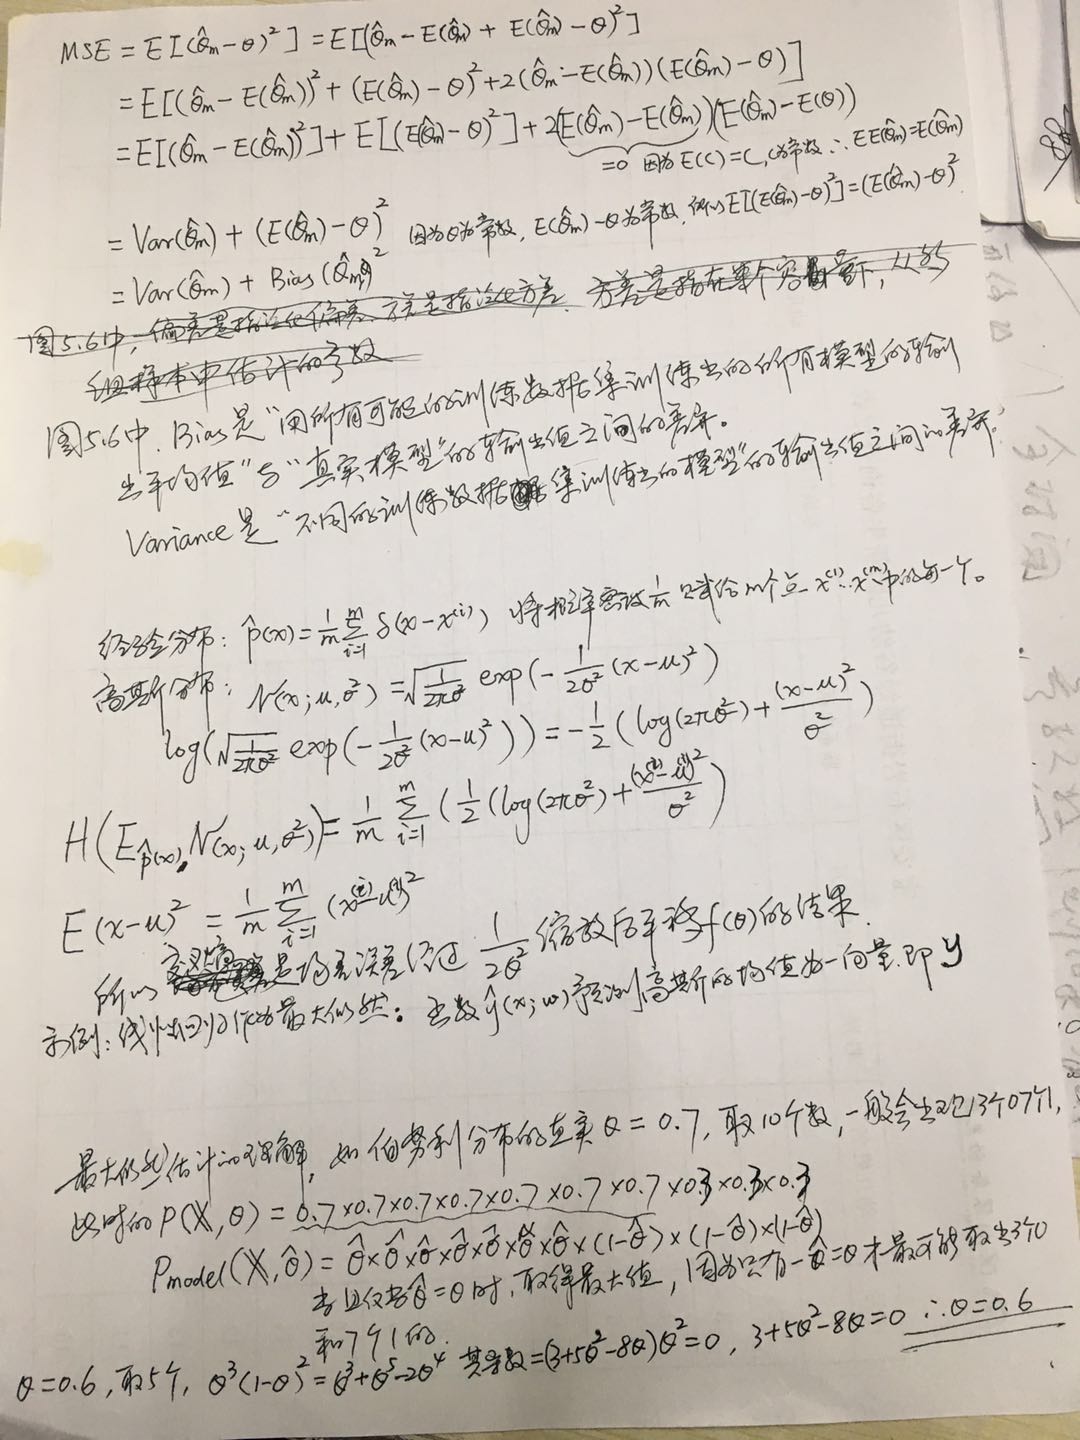 MSE = E[(θ̂m-θ)²] = E[(θ̂m - E(θ̂m) + E(θ̂m) - θ)²]
= E[(θ̂m - E(θ̂m))² + (E(θ̂m) - θ)² + 2(θ̂m - E(θ̂m))(E(θ̂m) - θ)]
= E[(θ̂m - E(θ̂m))²] + E[(E(θ̂m) - θ)²] + 2(E(θ̂m) - E(θ̂m))(E(θ̂m) - E(θ))
=0 因为E(C)=C, C为常数 ∴ EE(θ̂m)=E(θ̂m)
= Var(θ̂m) + (E(θ̂m) - θ)² 因为θ为常数, E(θ̂m)-θ为常数, 所以E[(E(θ̂m)-θ)²]=(E(θ̂m)-θ)²
= Var(θ̂m) + Bias(θ̂m)²
图5.6中, 偏差是指泛化偏差, 方差是指泛化方差. 方差是指在单个容量下, 从各
组样本中估计的参数
图5.6中. Bias是“用所有可能的训练数据集训练出的所有模型的输
出平均值”与“真实模型”的输出值之间的差异。
Variance是“不同的训练数据集训练出的模型”的输出值之间的差异.
经验分布: p̂(x) = 1/m Σ_{i=1}^{m} δ(x-x⁽ⁱ⁾) 将概率密度1/m 赋给m个点x⁽¹⁾…x⁽ᵐ⁾中的每一个。
高斯分布: N(x; μ, σ²) = √(1/(2πσ²)) exp(-1/(2σ²) (x-μ)²)
log(√(1/(2πσ²)) exp(-1/(2σ²) (x-μ)²)) = -1/2 (log(2πσ²) + (x-μ)²/σ²)
H(E_p̂(x), N(x; μ, σ²)) = 1/m Σ_{i=1}^{m} (1/2 (log(2πσ²) + (x⁽ⁱ⁾-μ⁽ⁱ⁾)²/σ²)
E(x-μ)² = 1/m Σ_{i=1}^{m} (x⁽ⁱ⁾-μ⁽ⁱ⁾)²
所以交叉熵是均方误差经过 1/(2σ²) 缩放后平移f(σ)的结果.
示例: 线性回归作为最大似然: 函数ŷ(x; w)预测高斯的均值为一向量. 即y
最大似然估计的理解, 如伯努利分布的真实θ=0.7, 取10个数, 一般会出现3个0 7个1,
此时的P(X, θ) = 0.7×0.7×0.7×0.7×0.7×0.7×0.7×0.3×0.3×0.3
Pmodel(X, θ̂) = θ̂×θ̂×θ̂×θ̂×θ̂×θ̂×θ̂×(1-θ̂)×(1-θ̂)×(1-θ̂)
当且仅当θ̂=θ时, 取得最大值, 因为只有θ̂=θ才最可能取出3个0
和7个1的.
θ=0.6, 取5个, θ³(1-θ)² = θ³+θ⁵-2θ⁴ 其导数=(3+5θ²-8θ)θ²=0, 3+5θ²-8θ=0 ∴θ=0.6